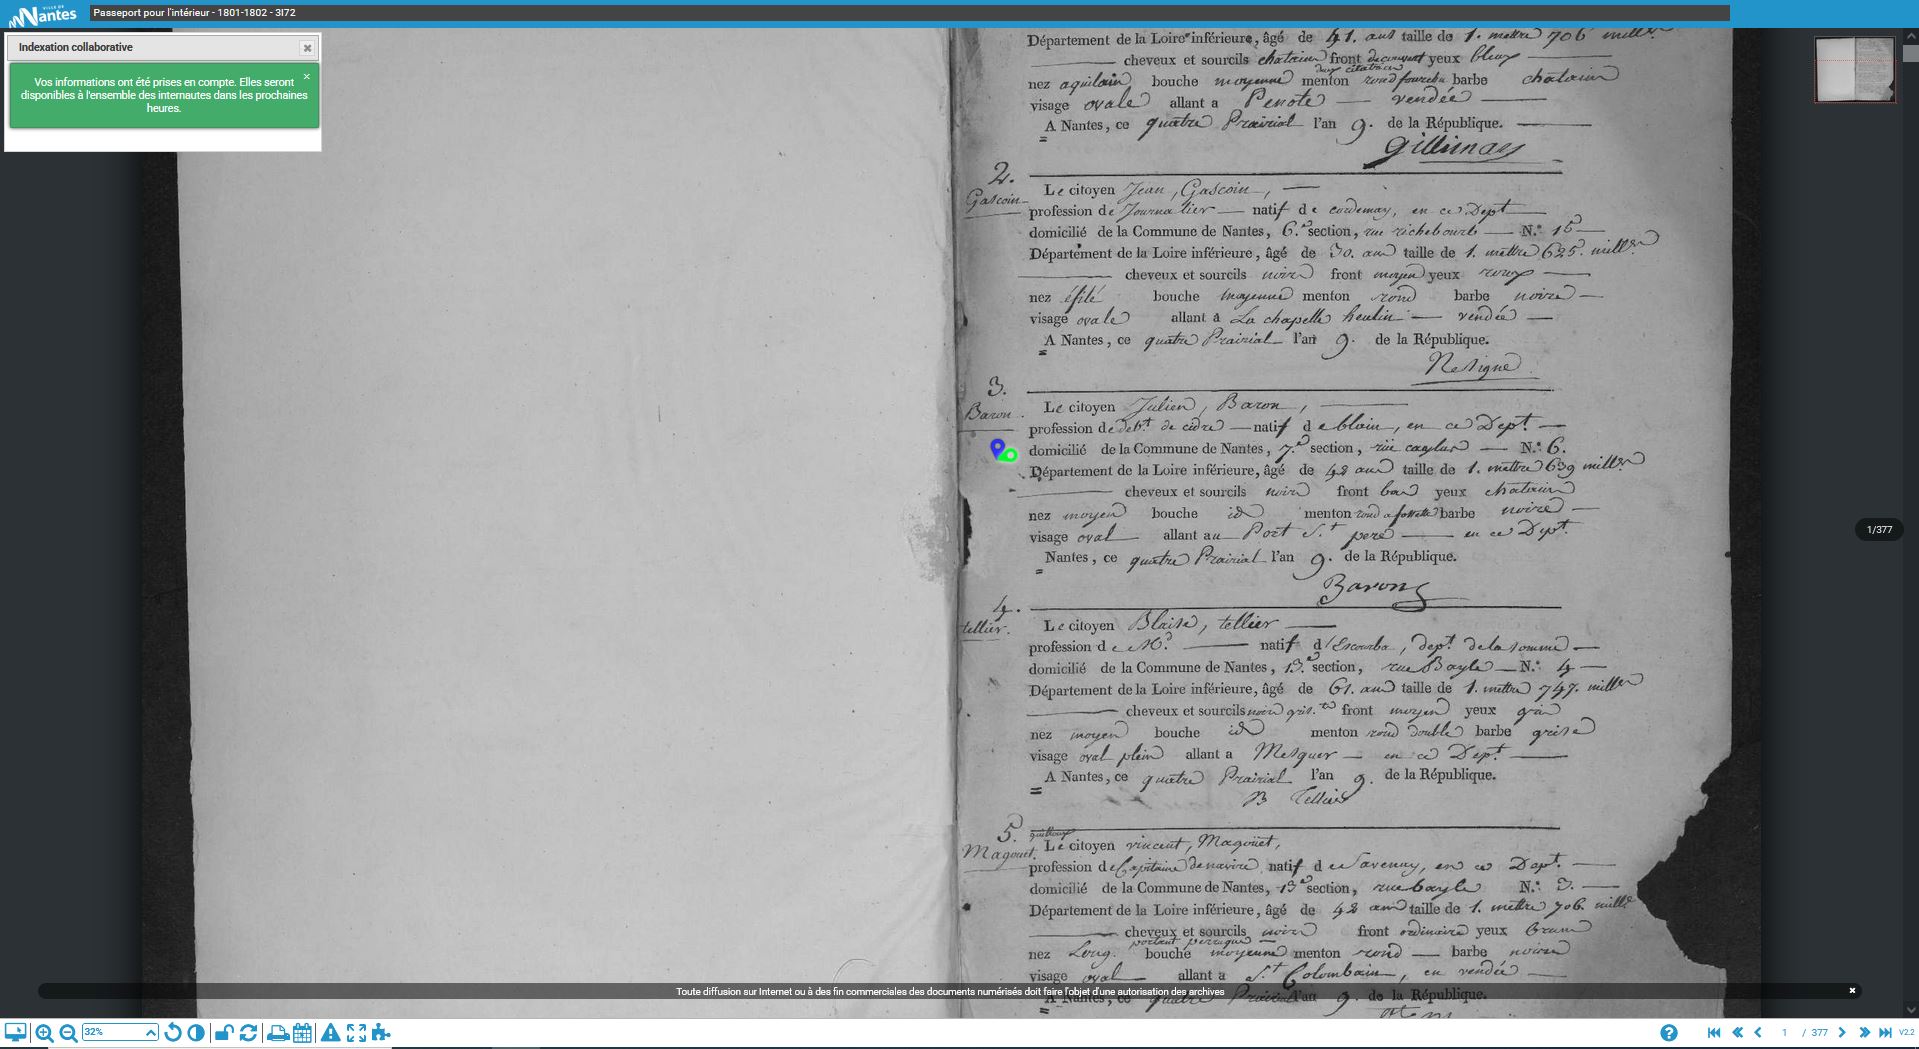 VILLE DE
Nantes
Passeport pour l'intérieur - 1801-1802 - 3I72
Indexation collaborative
Vos informations ont été prises en compte. Elles seront
disponibles à l'ensemble des internautes dans les prochaines
heures.
Département de la Loire inférieure, âgé de 41. ans taille de 1. mettre 706 mill.
cheveux et sourcils chatain front découvert yeux bleux
nez aquilain bouche moyenne menton rond fourchu barbe chatain
visage ovale allant a vendée
A Nantes, ce quatre Prairial l'an 9. de la République.
2.
Gascoin
Le citoyen Jean, Gascoin,
profession de Journalier natif de cordemay, en ce Dept
domicilié de la Commune de Nantes, 6.e section, rue richebourg N.° 15
Département de la Loire inférieure, âgé de 30. ans taille de 1. mettre 625. mill.
cheveux et sourcils noirs front moyen yeux roux
nez éfilé bouche moyenne menton rond barbe noire
visage ovale allant à La chapelle heulin vendée
A Nantes, ce quatre Prairial l'an 9. de la République.
Ne signe
3.
Baron.
Le citoyen Julien, Baron,
profession de debt. de cidre natif de blain, en ce Dept.
domicilié de la Commune de Nantes, 7.e section, rüe caylus N.° 6.
Département de la Loire inférieure, âgé de 42 ans taille de 1. mettre 639 mill.
cheveux et sourcils noirs front bas yeux chatains
nez moyen bouche id menton rond a fossette barbe noire
visage oval allant au Port St. pere en ce Dept.
Nantes, ce quatre Prairial l'an 9. de la République.
Baron
1/377
4.
tellier.
Le citoyen Blaise, tellier
profession de M.d natif d' dept. de la somme
domicilié de la Commune de Nantes, 13.e section, rue Bayle N.° 4
Département de la Loire inférieure, âgé de 61. ans taille de 1. mettre 747. mill.
cheveux et sourcils noirs front moyen yeux gris
nez moyen bouche id menton rond double barbe grise
visage oval plein allant a Mesquer en ce Dept.
A Nantes, ce quatre Prairial l'an 9. de la République.
B Tellier
5.
Magouet.
Le citoyen vincent, Magoüet,
profession de Capitaine de navire natif de Savenay, en ce Dept.
domicilié de la Commune de Nantes, 13e section, rue bayle N.° 3.
Département de la Loire inférieure, âgé de 42 ans taille de 1. mettre 706. mill.
cheveux et sourcils noirs front ordinaire yeux bruns
portant perruque
nez Long. bouche moyenne menton rond barbe noire
visage oval allant a St. Colombain, en vendée
Toute diffusion sur Internet ou à des fin commerciales des documents numérisés doit faire l'objet d'une autorisation des archives
A Nantes, ce quatre Prairial l'an 9. de la République.
32%
1 / 377
V2.2